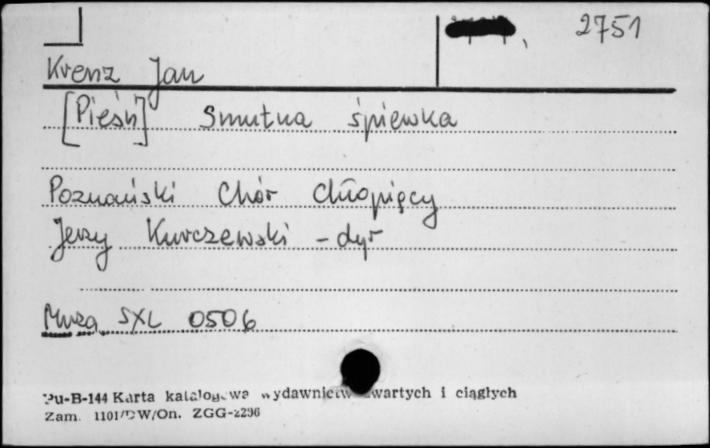 2751
Krenz Jan
[Pieśń] Smutna śpiewka
Poznański Chór Chłopięcy
Jerzy Kurczewski - dyr
Muza SXL 0506
Pu-B-144 Karta katalogowa wydawnictw zwartych i ciągłych
Zam. 1101/DW/On. ZGG-2296